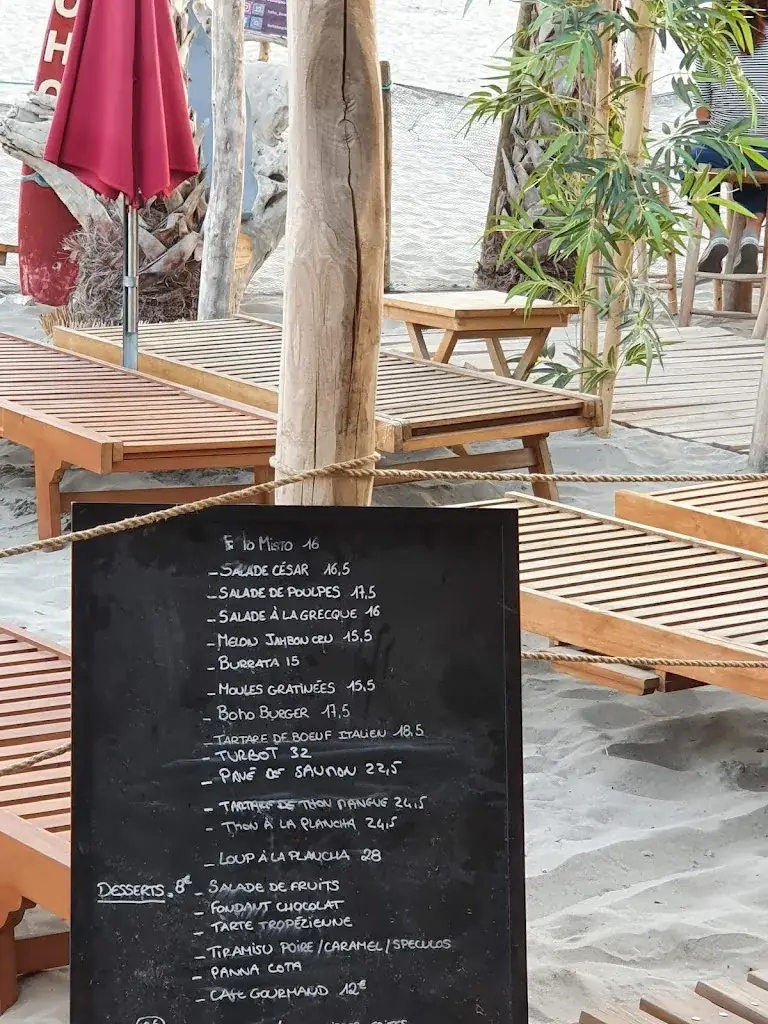 OHO
Misto 16
- SALADE CÉSAR 16,5
- SALADE DE POULPES 17,5
- SALADE À LA GRECQUE 16
- MELON JAMBON CRU 15,5
- BURRATA 15
- MOULES GRATINÉES 15,5
- BOHO BURGER 17,5
- TARTARE DE BOEUF ITALIEN 18,5
- TURBOT 32
- PAVÉ DE SAUMON 22,5
- TARTARE DE THON MANGUE 24,5
- THON À LA PLANCHA 24,5
- LOUP À LA PLANCHA 28
DESSERTS. 8€ - SALADE DE FRUITS
- FONDANT CHOCOLAT
- TARTE TROPÉZIENNE
- TIRAMISU POIRE / CARAMEL / SPECULOS
- PANNA COTA
- CAFE GOURMAND 12€